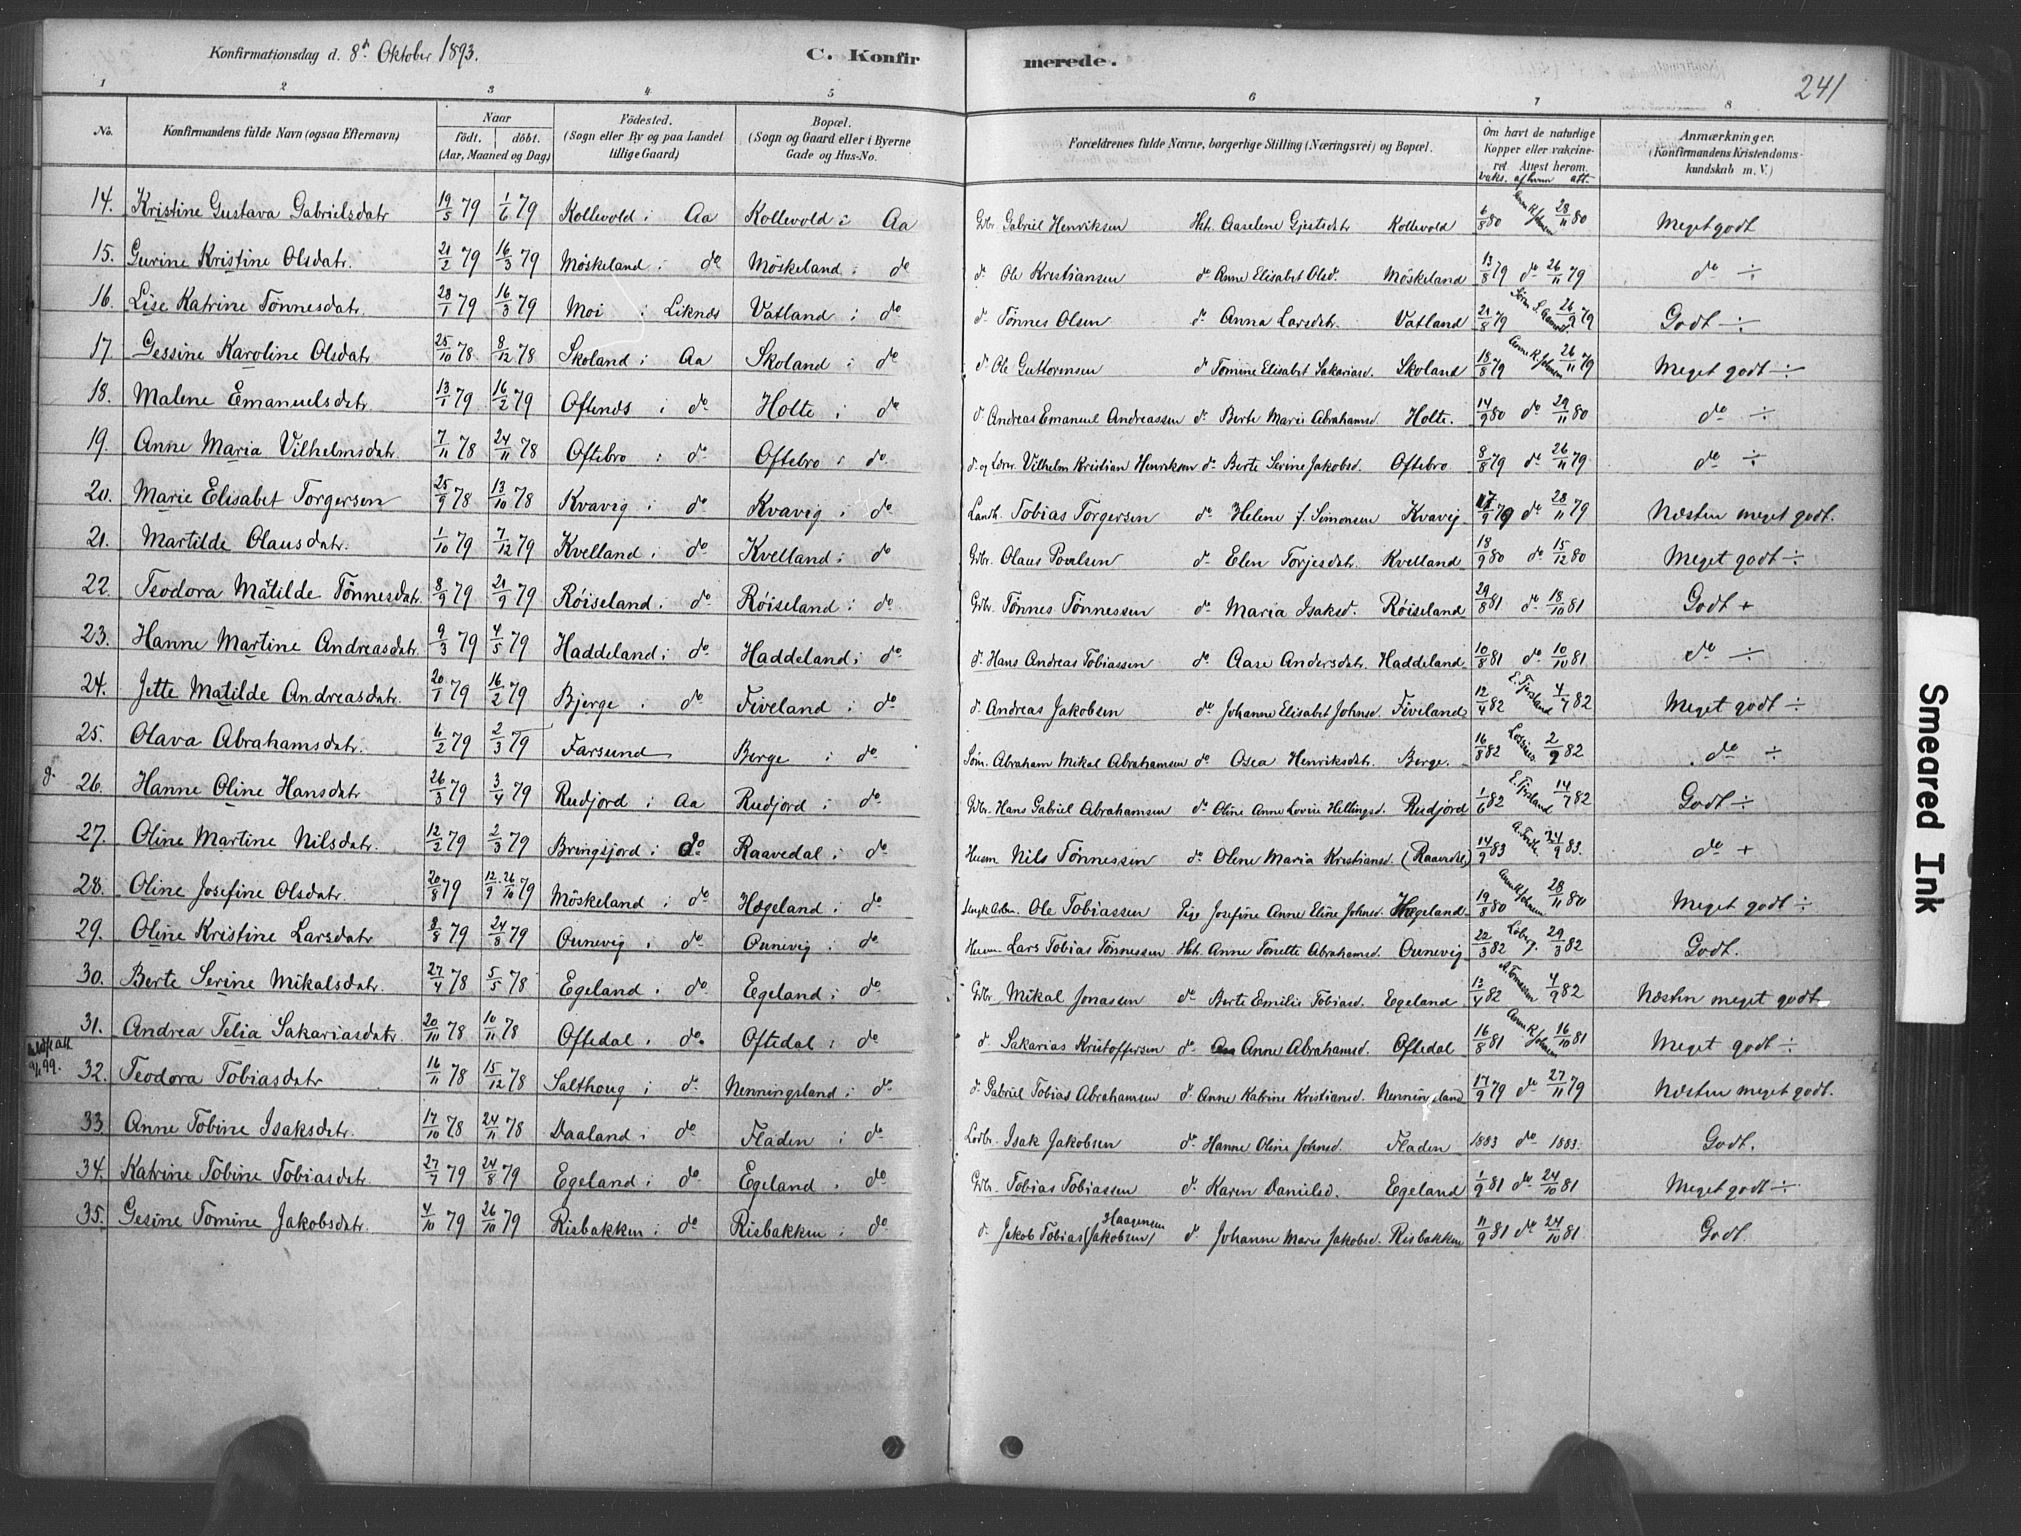 Konfirmationsdag d. 8de Oktober 1893. C. Konfirmerede. 241
1 2 3 4 5 6 7 8
No. Konfirmandens fulde Navn (ogsaa Efternavn) Naar födt. döbt. (Aar, Maaned og Dag) Födested. (Sogn eller By og paa Landet tillige Gaard) Bopæl. (Sogn og Gaard eller i Byerne Gade og Hus-No. Forældrenes fulde Navne, borgerlige Stilling (Næringsvei) og Bopæl. Om havt de naturlige Kopper eller vakcineret Attest herom. vaks. af hvem att. Anmærkninger. (Konfirmandens Kristendomskundskab m. V.)
14. Kristine Gustava Gabrielsdatr 19/5 79 1/6 79 Kollevold i Aa Kollevold i Aa Gbr. Gabriel Henriksen Hst. Aaselene Gjertsdatr Kollevold 6/8 80 28/11 80 Meget godt
15. Gurine Kristine Olsdatr. 21/2 79 16/3 79 Möskeland i do Möskeland i do do Ole Kristiansen do Anne Elisabet Olsd. Möskeland 13/8 79 do 26/11 79 do ÷
16. Lise Katrine Tönnesdatr. 28/1 79 16/3 79 Moi i Liknes Vatland i do do Tönnes Olsen do Anna Larsdtr. Vatland 21/8 79 26/9 79 Godt ÷
17. Gessine Karoline Olsdatr 25/10 78 8/12 78 Skoland i Aa Skoland i do do Ole Guttormsen do Tomine Elisabet Sakariasd. Skoland 18/8 79 Anne R. Johnsen 26/11 79 Meget godt ÷
18. Malene Emanuelsdatr. 13/1 79 16/2 79 Oftenes i do Holte i do do Andreas Emanuel Andreassen do Berte Marie Abrahamsd. Holte. 14/9 80 do 29/11 80 do ÷
19. Anne Maria Vilhelmsdatr. 7/11 78 24/11 78 Oftebro i do Oftebro i do do og Ldsr. Vilhelm Kristian Henriksen do Berte Serine Jakobsd. Oftebro 8/8 79 do 26/11 79 do ÷
20. Marie Elisabet Torgersen 25/9 78 13/10 78 Kvavig i do Kvavig i do Landh. Tobias Torgersen do Helene f. Simonsen Kvavig 17/9 79 do 28/11 79 Næsten meget godt.
21. Martilde Olausdatr. 1/10 79 7/12 79 Kvelland i do Kvelland i do Gbr. Olaus Povelsen do Elen Torjesdatr. Kvelland 18/9 80 do 15/12 80 Meget godt ÷
22. Teodora Matilde Tönnesdatr. 8/9 79 21/9 79 Röiseland i do Röiseland i do Gbr. Tönnes Tönnessen do Maria Isaksd. Röiseland 29/8 81 do 18/10 81 Godt +
23. Hanne Martine Andreasdatr. 9/3 79 4/5 79 Haddeland i do Haddeland i do do Hans Andreas Tobiassen do Aase Andersdatr. Haddeland 10/8 81 do 10/10 81 do ÷
24. Jette Matilde Andreasdatr. 20/1 79 16/2 79 Bjerge i do Fiveland i do do Andreas Jakobsen do Johanne Elisabet Johnsd. Fiveland 12/4 82 E. Fjersland 4/7 82 Meget godt ÷
25. Olava Abrahamsdatr. 6/2 79 2/3 79 Farsund Berge i do Söm. Abraham Mikal Abrahamsen do Osea Henriksdatr. Berge. 16/8 82 2/9 82 do ÷
26. Hanne Oline Hansdatr. 26/3 79 3/4 79 Rudjord i Aa Rudjord i do Gbr. Hans Gabriel Abrahamsen do Oline Anne Lovise Hellingsd. Rudjord 1/6 82 E. Fjersland 14/7 82 Godt ÷
27. Oline Martine Nilsdatr. 12/2 79 2/3 79 Bringsjord i do Raavedal i do Husm Nils Tönnessen do Olene Maria Kristiansd. (Raavedal) 14/9 83 24/9 83. do +
28. Oline Josefine Olsdatr 20/8 79 12/9 26/10 79 Möskeland i do Hægeland i do Ole Tobiassen Pige Josefine Anne Eline Johnsd. Hægeland 19/8 80 Anne R. Johnsen 28/11 80 Meget godt ÷
29. Oline Kristine Larsdatr 8/8 79 24/8 79 Ounevig i do Ounevig i do Husm Lars Tobias Tönnessen Hst. Anne Tonette Abrahamsd. Ounevig 22/3 82 Loberg. 29/3 82 Godt.
30. Berte Serine Mikalsdatr. 27/4 78 5/5 78 Egeland i do Egeland i do Gbr. Mikal Jonassen do Berte Emilie Tobiasd. Egeland 13/4 82 4/9 82 Næsten meget godt
31. Andrea Telia Sakariasdatr. 20/10 78 10/11 78 Oftedal i do Oftedal i do do Sakarias Kristoffersen do Anne Abrahamsd. Oftedal 16/8 81 Anne R. Johnsen 16/10 81 Meget godt ÷
32. Teodora Tobiasdatr 16/11 78 15/12 78 Salthoug i do Nenningsland i do do Gabriel Tobias Abrahamsen do Anne Katrine Kristiansd. Nenningsland 17/9 79 do 27/11 79 Næsten meget godt.
33. Anne Tobine Isaksdatr. 17/10 78 24/11 78 Daaland i do Fladen i do Isak Jakobsen do Hanne Oline Johnsd. Fladen 1883 do 1883. Godt.
34. Katrine Tobine Tobiasdatr. 27/7 79 24/8 79 Egeland i do Egeland i do Gbr. Tobias Tobiassen do Karen Danielsd. Egeland 1/9 81 do 24/10 81 Meget godt ÷
35. Gesine Tomine Jakobsdatr. 4/10 79 26/10 79 Risbakken i do Risbakken i do do Jakob Tobias (Jakobsen) Haagensen do Johanne Marie Jakobsd. Risbakken 11/9 81 do 24/10 81 Godt.
Smeared Ink